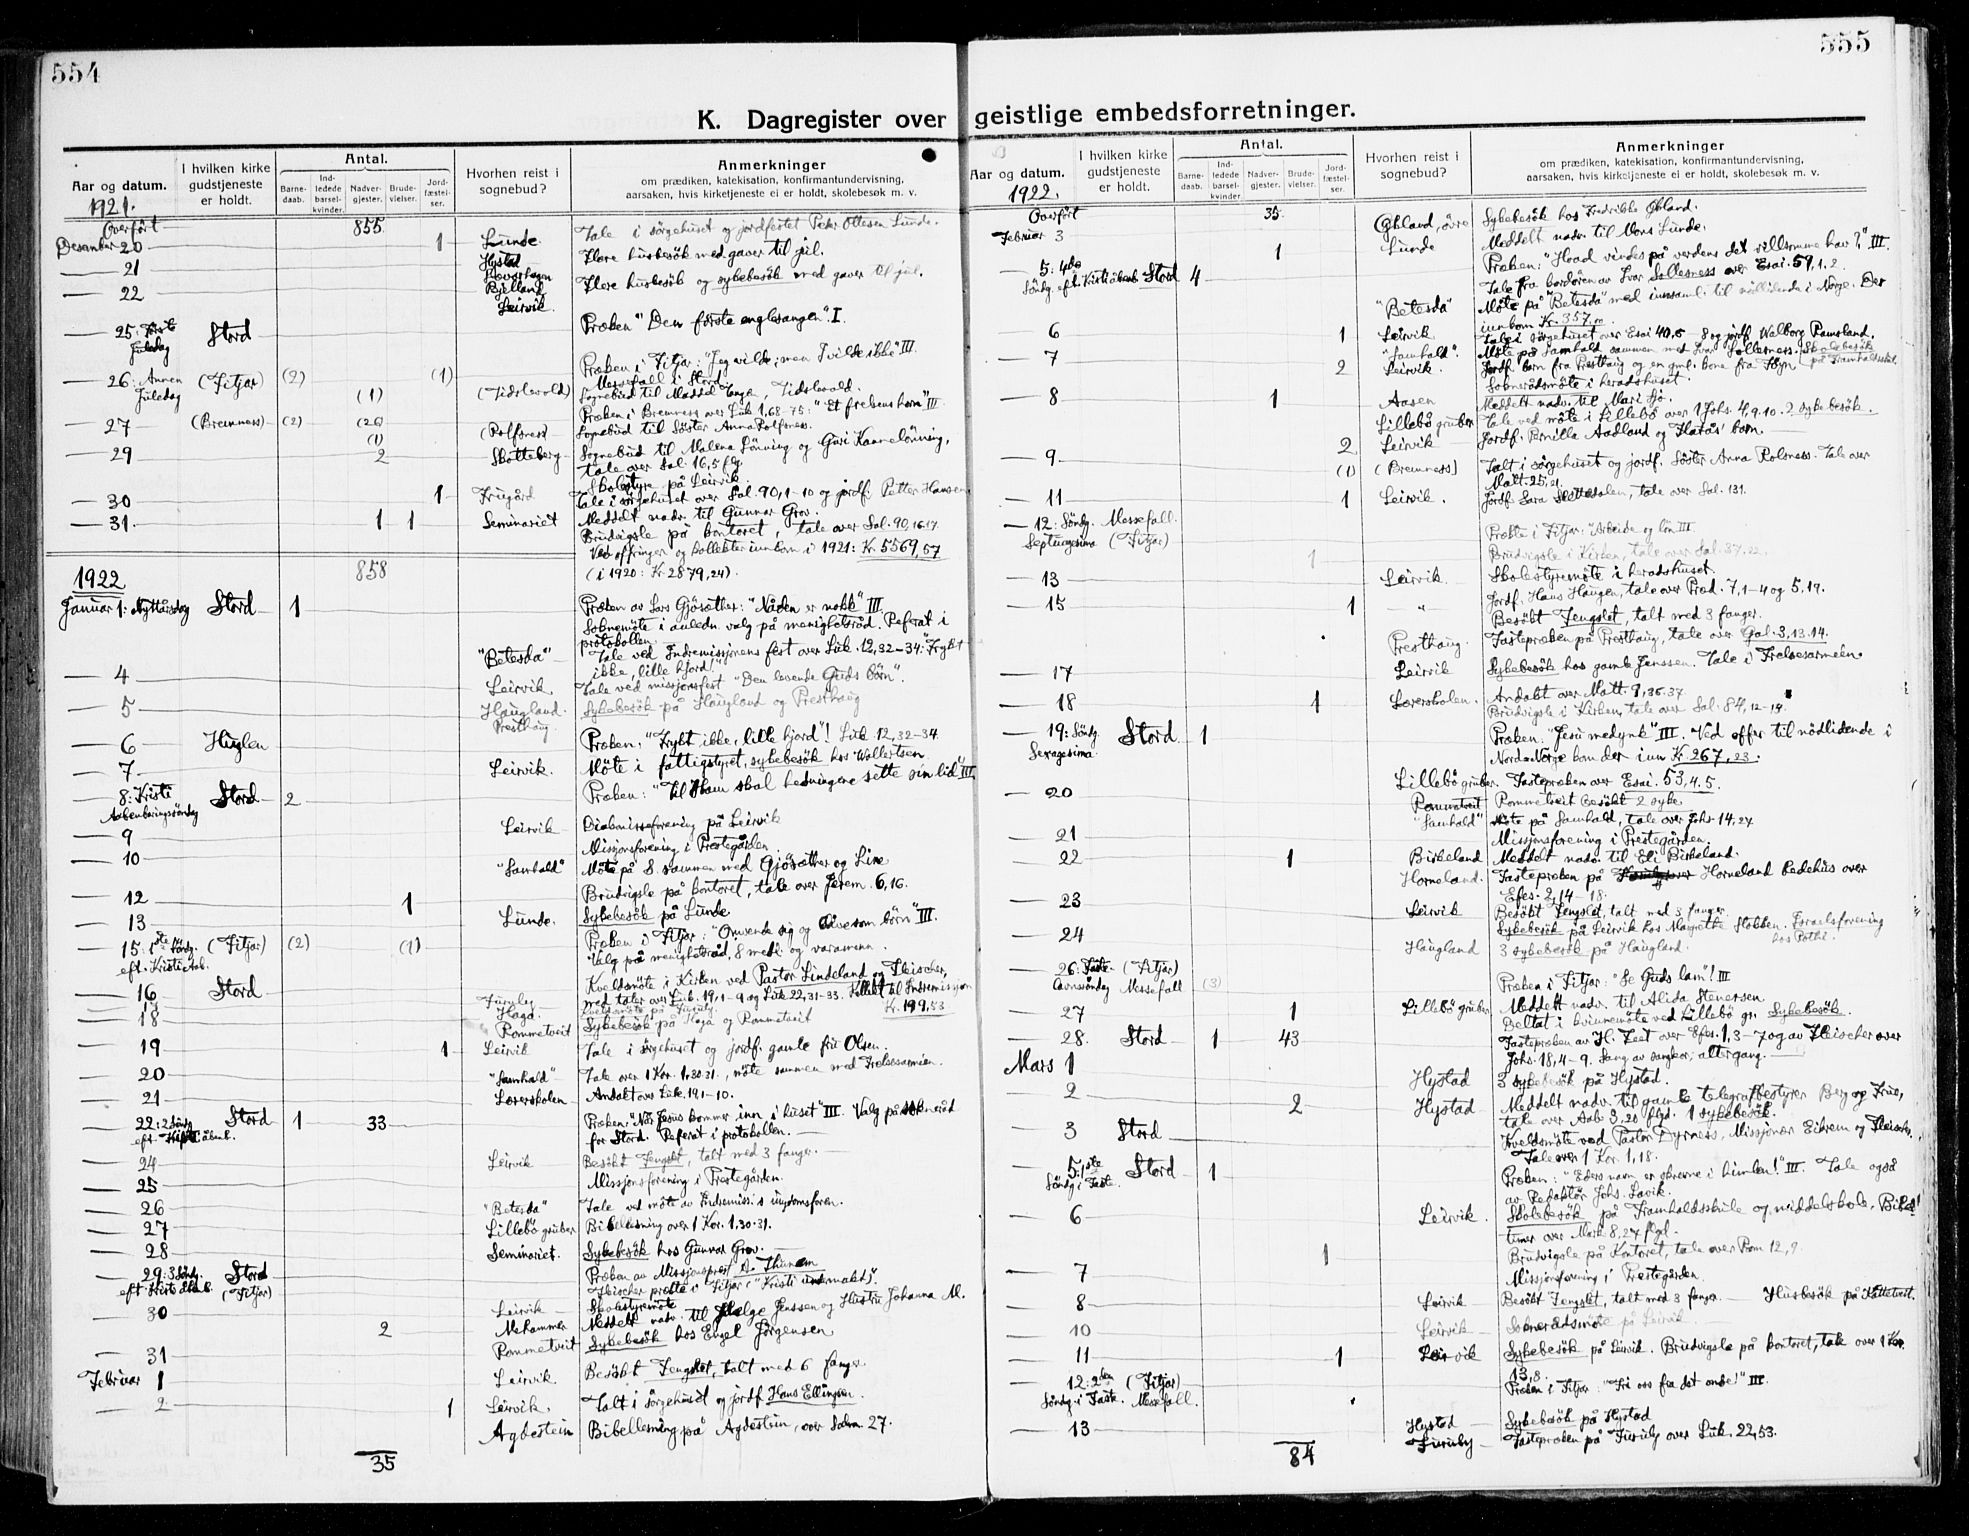 554
K. Dagregister over
Antal.
Aar og datum.
I hvilken kirke gudstjeneste er holdt.
Barne-daab.
Ind-ledede barsel-kvinder.
Nadver-gjester.
Brude-vielser.
Jord-fæstel-ser.
Hvorhen reist i sognebud?
Anmerkninger
om prædiken, katekisation, konfirmantundervisning,
aarsaken, hvis kirketjeneste ei er holdt, skolebesøk m. v.
1921.
Overført 855
Desember 20 1 Lunde. Tale i sørgehuset og jordfestet Peder Ottesen Lunde.
21 Hystad Flere husbesök med gaver til jul.
22 Bjelland Flere husbesök og sykebesök med gaver til jul.
Leirvik.
25. Første Juledag Stord Præken "Den første englesangen". I.
26. Annen Juledag (Fitjar) (2) (1) Præken i Fitjar: "Jeg vilde; men I vilde ikke" III.
Messefall i Stord.
(1) (Tidslevold) Sognebud til Tidslevold.
27 (Bremness) (2) (20) Præken i Bremness over Luk 1,68-75: "Et frelsens horn" III.
(1) (Rolfsness) Sognebud til Søster Anna Rolfsness.
29 2 Skotteberg Sognebud til Malena Lønning og Guri Kannelønning,
tale over Sal. 16,5 flg.
Skolestyre på Leirvik
30 1 Frugård Tale i sørgehuset over Sal. 90,1-10 og jordf. Petter Hansen.
31. 1 1 Seminariet Meddelt nadv. til Gunnar Grov.
Brudvigsle på kontoret, tale over Sal. 90,16.17
Ved offringer og kollekter innkom i 1921: Kr. 5569,57
858 (i 1920: Kr. 2879,24).
1922
Januar 1: Nyttårsdag Stord 1 Præken av Lars Gjösæther: "Nåden er nokk" III
Soknemöte i anledn. valg på menighetsråd. Referat i
protokollen
"Betesda" Tale ved Indremissjonens fest over Luk. 12,32-34: "Frykt
ikke, lille hjord!"
4 Leirvik. Tale ved missjonsfest "Den levende Guds börn".
5 Haugland. Sykebesök på Haugland og Presthaug
Presthaug
6 Huglen Præken: "Frykt ikke, lille hjord"! Luk 12,32-34
7 Leirvik. Möte i fattigstyret, sykebesök hos Wallertsen
8: Kristi Aabenbaringssöndag Stord 2 Præken: "Til Ham skal hedningene sette sin lid" III.
9 Leirvik Diakonisseforening på Leirvik
10 Missjonsforening i Prestegården
"Samhald" Möte på S. sammen med Gjösæther og Line
12 1 Brudvigsle på kontoret, tale over Jerem. 6,16.
13 Lunde. Sykebesök på Lunde
15: 1ste Söndg. eft. Kristi Aab. (Fitjar) (2) (1) Præken i Fitjar: "Omvende sig og bli som börn" III.
Valg på menighetsråd, 8 medl. og varamenn.
16 Stord Kveldsmöte i Kirken ved Pastor Lindeland og Fleischer,
17 Furuly med taler over Luk. 19,1-9 og Luk 22,31-33. Kollekt til Indremissjon
Kr. 199,53
18 Haga. Rommetveit Sykebesök på Haga og Rommetveit
19 1 Leirvik Tale i sørgehuset og jordf. gamle fru Olsen.
20 "Samhald" Tale over 1 Kor. 1,30.31., möte sammen med Frelsesarmèen.
21 Lærerskolen Andakt over Luk. 19,1-10.
22: 2 Söndg eft. Kristi åbenb. Stord 1 33 Præken: "Når Jesus kommer inn i huset" III. Valg på sokneråd
for Stord. Referat i protokollen.
24 Leirvik Besökt Fengslet, talt med 3 fanger.
25 Missjonsforening i Prestegården.
26 "Betesda" Tale ved möte av Indremiss:s ungdomsforen.
27 Lillebö gruber Bibellesning over 1 Kor. 1,30.31.
28 Seminariet. Sykebesök hos Gunnar Grov.
29: 3 Söndg. eft Kristi åbb. Stord (Fitjar) Præken av Missjonsprest A. Thunem
Fleischer prekte i Fitjar ("Kristi undermakt").
30 Leirvik Skolestyremöte
2 Mehammer Meddelt nadv. til Helge Jenssen og Hustru Johanna M.
Rommetveit Sykebesök hos Engel Jörgensen
31 Leirvik Besökt Fengslet, talt med 6 fanger.
Februar 1
2 1 Leirvik. Talt i sörgehuset og jordf. Hans Ellingsen.
Agdestein Bibellesning på Agdestein, over Salm. 27.
35
555
geistlige embedsforretninger.
Antal.
Aar og datum.
I hvilken kirke gudstjeneste er holdt.
Barne-daab.
Ind-ledede barsel-kvinder.
Nadver-gjester.
Brude-vielser.
Jord-fæstel-ser.
Hvorhen reist i sognebud?
Anmerkninger
om prædiken, katekisation, konfirmantundervisning,
aarsaken, hvis kirketjeneste ei er holdt, skolebesøk m. v.
1922.
Overført 35
Februar 3 Økland, øvre Sykebesök hos Fredrikke Økland.
1 Lunde Meddelt nadv. til Mons Lunde.
5: 4de Söndg. eft. Kristi åbenb. Stord 4 Præken: "Hvad vindes på verdens det villsomme hav?" III.
Tale fra kordören av Ivar Sellesness over Esai. 59,1.2.
"Betesda" Möte på "Betesda" med innsaml. til nödlidende i Norge. Der
innkom Kr. 357,00
6 1 Leirvik Tale i sörgehuset over Esai 40,6-8 og jordf. Valborg Ramsland.
7 "Samhald". Möte på Samhald sammen med Ivar Sellesness. Skolebesök
på Framhaldsskul.
2 Leirvik. Jordf. barn fra Presthaug og en gml. kone fra
Soknerådsmöte i heradshuset.
8 1 Aasen Meddelt nadv. til Mari
Lillebö gruber Tale ved möte i Lillebö over 1 Johs. 4,9.10. 2 sykebesök.
2 Leirvik Jordf. Pernilla Aadland og barn
9 (1) (Bremness) Talt i sörgehuset og jordf. Söster Anna Rolsness. Tale over
Matt. 25,21.
11 1 Leirvik. Jordf. Sara tale over Sal. 131.
12: Söndg. Septuagesima Messefall. (Fitjar) Prekte i Fitjar: "Arbeide og lön III
1 Brudvigsle i Kirken, tale over Sal. 37,22.
13 Leirvik Skolestyremöte i heradshuset.
15 1 — " — Jordf. Hans Haugen, tale over Præd. 7,1-4 og 5,19.
Besökt Fengslet, talt med 3 fanger.
Presthaug Fastepræken på Presthaug, tale over Gal. 3,13.14.
17 Leirvik Sykebesök hos gamle Jenssen. Tale i Frelsesarmèen.
18 1 Lærerskolen. Andakt over Matt. 9,36.37.
Brudvigsle i Kirken, tale over Sal. 84,12-13.
19: Söndg. Sexagesima. Stord 1 Præken: "Jesu medynk" III. Ved offer til nödlidende i
Nord-Norge kom der inn Kr. 267,23.
20 Lillebö gruber Fastepræken over Esai. 53,4.5.
Rommetveit Rommetveit Besökt 2 syke
21 "Samhald" Möte på Samhald, tale over Johs 14,27
Missjonsforening i Prestegården.
22 1 Birkeland Meddelt nadv. til Eli Birkeland.
Horneland. Fastepræken på Horneland bedehus over
Efes. 2,14-18.
23 Leirvik Besökt Fengslet, talt med 3 fanger.
Sykebesök på Leirvik hos Margrethe Stokken. Israelsforening
24 Haugland 3 sykebesök på Haugland.
26: Faste-lavnssöndag (Fitjar) Messefall (3) Præken i Fitjar: "Se Guds lam"! III
27 1 Lillebö gruber Meddelt nadv. til Alida Stenersen.
Deltat i kvinnemöte ved Lillebö gr. Sykebesök.
28. Stord 1 43 Fastepræken av H. Leet over Efes. 1,3-7 og av Fleischer over
Johs. 18,4-9. Sang av sangkor; altergang.
Mars 1 Hystad 3 sykebesök på Hystad.
2 2 Hystad Meddelt nadv. til gamle telegrafbestyrer Berg og Frue,
tale over Aab. 3,20 flgd. 1 sykebesök.
3 Stord Kveldsmöte ved Pastor Dyrness, Missjonær Eikrem og Fleischer.
Tale over 1 Kor. 1,18.
5: 1ste Söndg i Faste. Stord 1 Præken: "Eders navn er skrevne i himlen!" III. Tale også
av Redaktör Johs. Lavik.
6 Leirvik. Skolebesök på Framhaldsskule og middelskole. Bibel-
timer over Mark 8,27 flgd.
1 Brudvigsle på Kontoret, tale over Rom 12,9.
7 Missjonsforening i Prestegården
8 Leirvik Besökt Fengslet, talt med 3 fanger. Husbesök på Kattetveit.
10 Leirvik Soknerådsmöte på Leirvik.
11 1 Leirvik Sykebesök på Leirvik. Brudvigsle på kontoret, tale over 1 Kor.
13,8.
12: 2den Söndg. i Faste. (Fitjar) Messefall. Præken i Fitjar: "Fri oss fra det onde!" III.
13 Hystad Sykebesök på Hystad
Furuly Fastepræken på Furuly over Luk. 22,53.
84